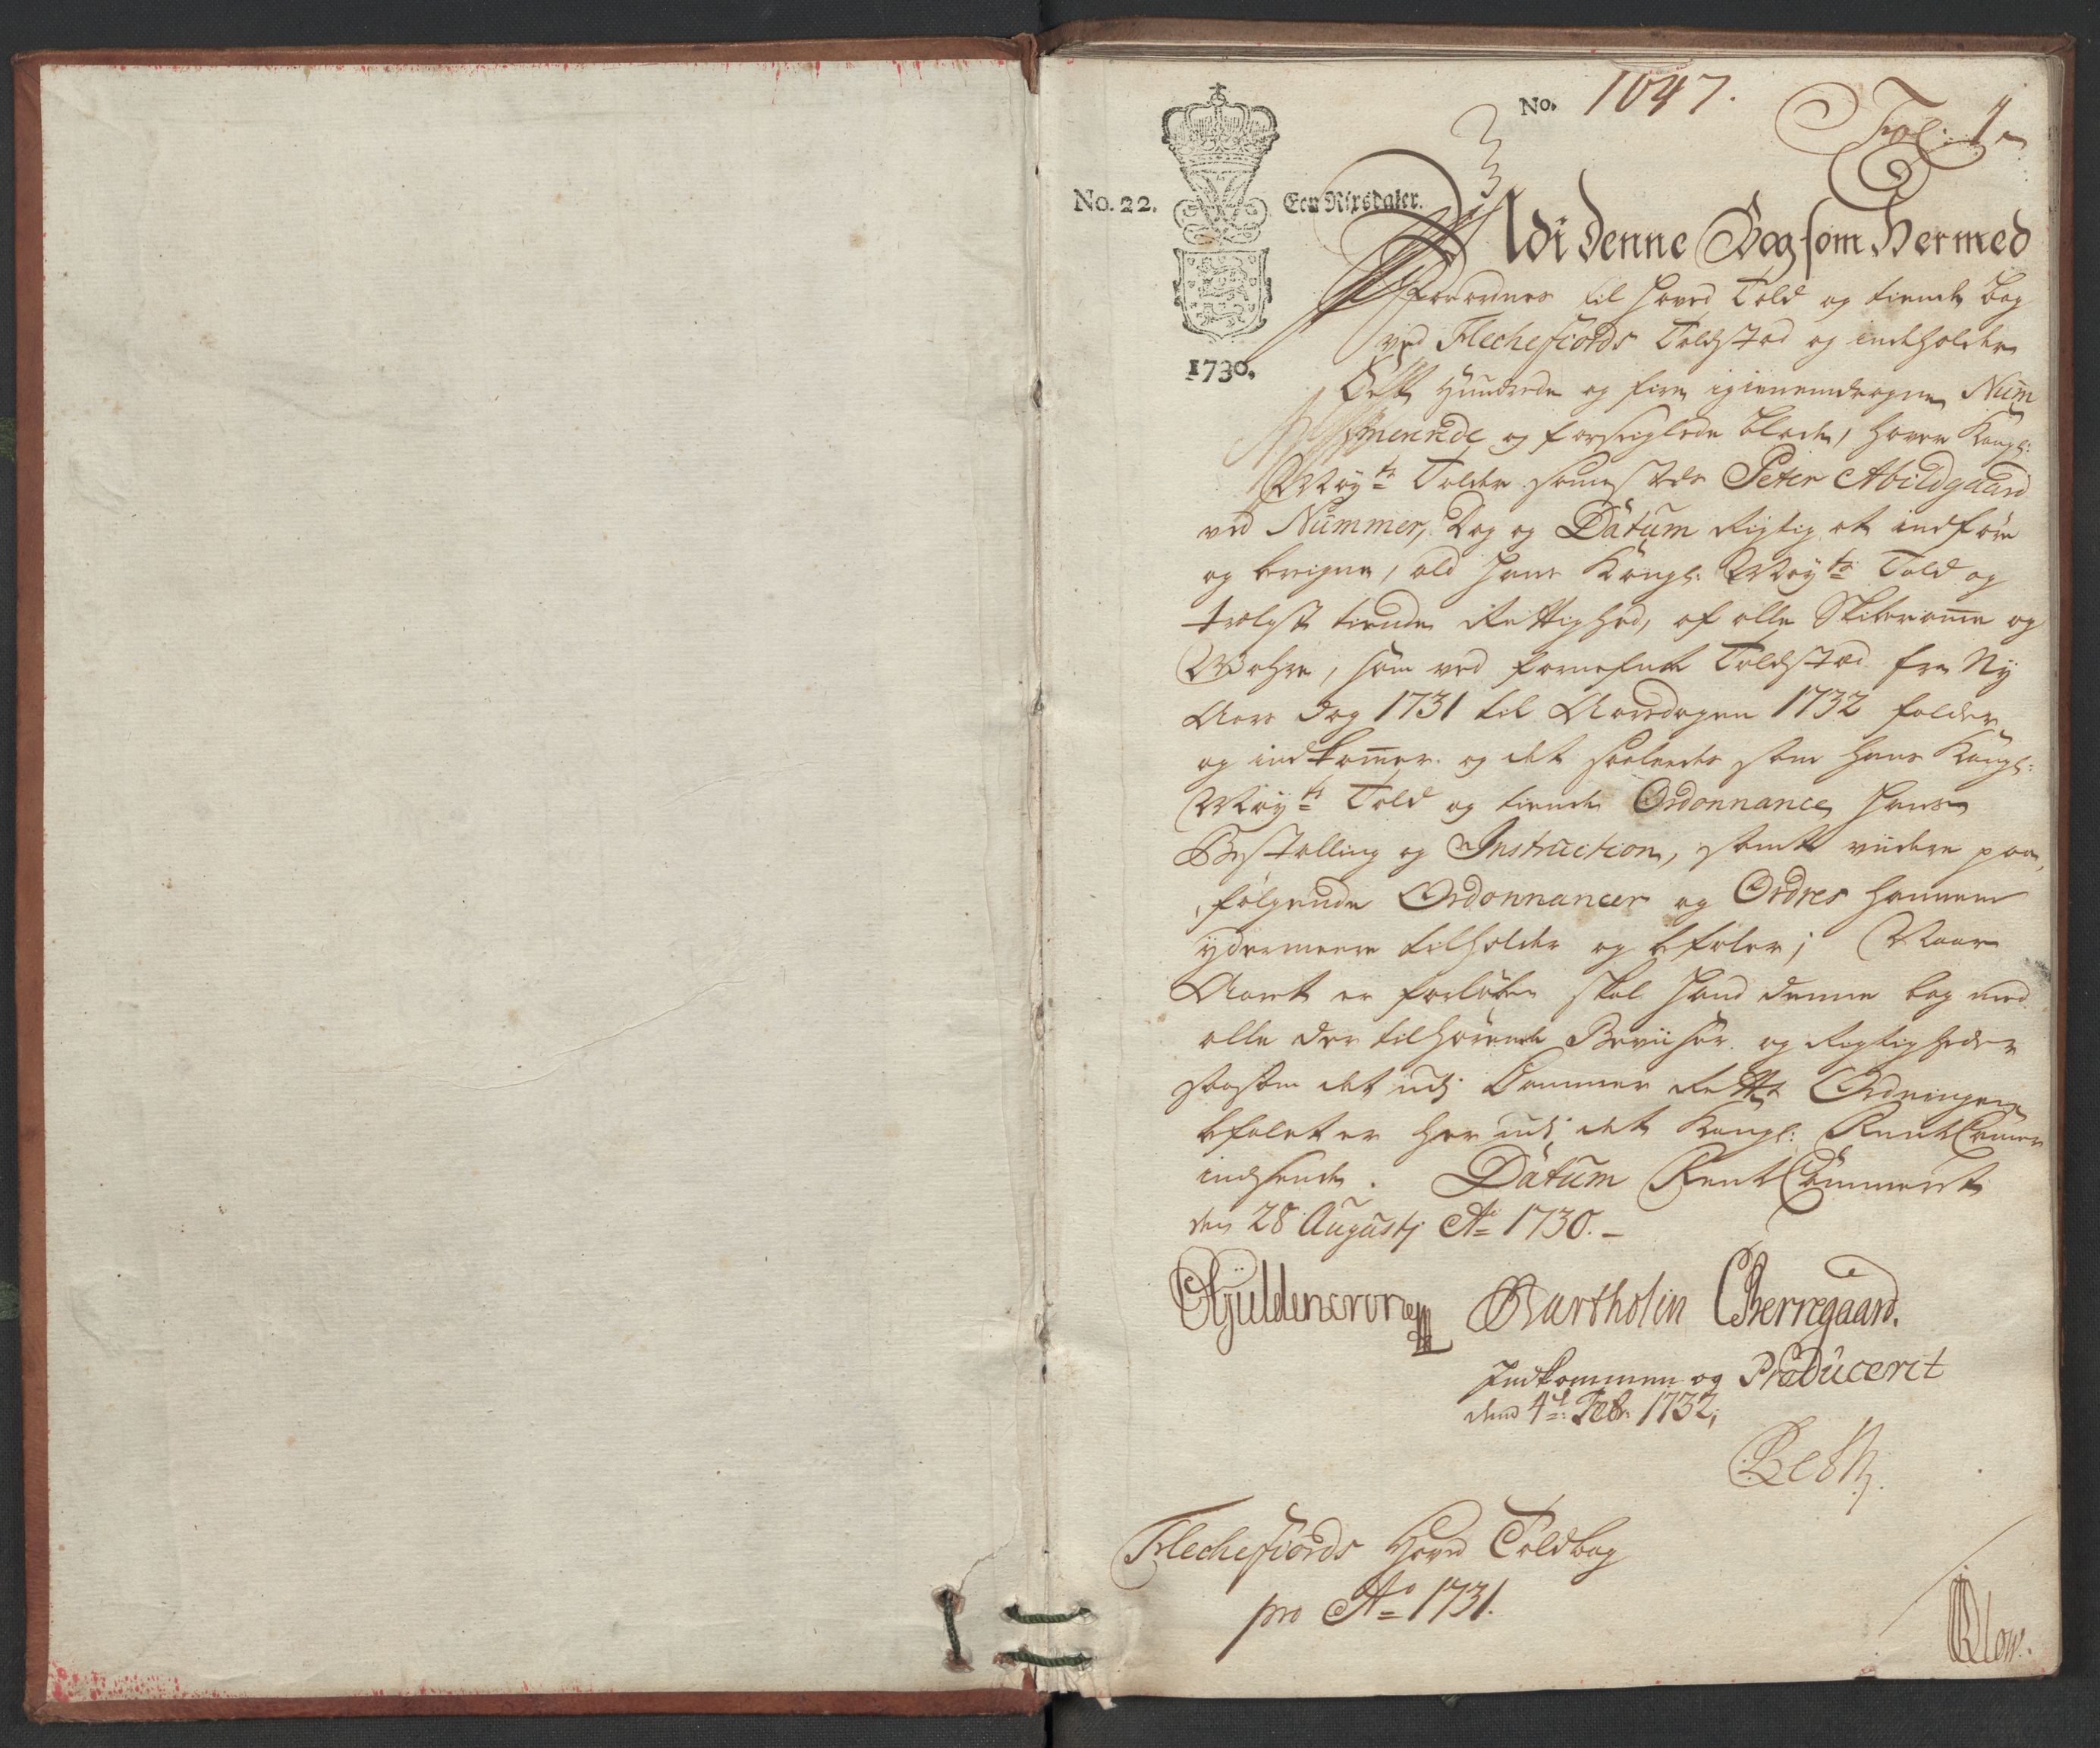 No. 1047.
Fol: 1
No. 22. Een Rixsdaler.
1730.
Udi denne Bog som Hermed
forordnes til hoved Told og tiende bog
ved Flechefiords Toldsted og indeholder
Hundrede og fire igiennemdragne Num
merende og forseiglede blade, haver Kongl:
May.ts Tolder sammesteds Peter Abildgaard
ved Nummer, Dag og Datum rigtig at indføre
og beregne, ald hans Kongl: May.ts Told og
tiende Rettighed, af alle Skiberomme og
Wahre, som ved fornefnte Toldsted fra Ny
Aars dag 1731 til Aarsdagen 1732 falder
og indkommer. og det saaledes som hans Kongl:
May.ts Told og tiende Ordonnance, hans
Bestalling og Instruction, samt viidere paa,
følgende Ordonnancer og Ordres hannem
ydermeere tilholder og befaler; Naar
Aaret er forløben skal hand denne bog med
alle der tilhørende Beviiser og Rigtigheder
saasom det udj Cammer Rettes Ordningen
befalet er her udj det Kongl: RentCammer
indsende. Datum RentCammeret
den 28 Augustj Ao 1730.
Gyldencrone Bartholin CBerregaard.
Indkommen og Producerit
dend 4de Febr. 1732;
Flechefiords Hoved Toldbog
pro Ao 1731.